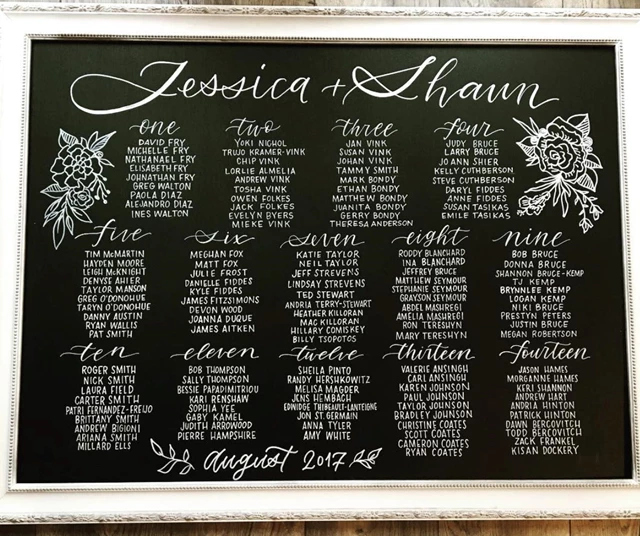 Jessica + Shaun
one
DAVID FRY
MICHELLE FRY
NATHANAEL FRY
ELISABETH FRY
JOHNATHAN FRY
GREG WALTON
PAOLA DIAZ
ALEJANDRO DIAZ
INES WALTON
two
YOKI NICHOL
TRUJO KRAMER-VINK
CHIP VINK
LORLIE ALMELIA
ANDREW VINK
TOSHA VINK
OWEN FOLKES
JACK FOLKES
EVELYN BYERS
MIEKE VINK
three
JAN VINK
SUSAN VINK
JOHAN VINK
TAMMY SMITH
MARK BONDY
ETHAN BONDY
MATTHEW BONDY
JUANITA BONDY
GERRY BONDY
THERESA ANDERSON
four
JUDY BRUCE
LARRY BRUCE
JO ANN SHIER
KELLY CUTHBERSON
STEVE CUTHBERSON
DARYL FIDDES
ANNE FIDDES
SUSAN TASIKAS
EMILE TASIKAS
five
TIM McMARTIN
HAYDEN MOORE
LEIGH McKNIGHT
DENYSE AHIER
TAYLOR MANSON
GREG O'DONOHUE
TARYN O'DONOHUE
DANNY AUSTIN
RYAN WALLIS
PAT SMITH
six
MEGHAN FOX
MATT FOX
JULIE FROST
DANIELLE FIDDES
KYLE FIDDES
JAMES FITZSIMONS
DEVON WOOD
JOANNA DUQUE
JAMES AITKEN
seven
KATIE TAYLOR
NEIL TAYLOR
JEFF STREVENS
LINDSAY STREVENS
TED STEWART
ANDRIA TERRY-STEWART
HEATHER KILLORAN
MAC KILLORAN
HILLARY COMISKEY
BILLY TSOPOTOS
eight
RODDY BLANCHARD
INA BLANCHARD
JEFFREY BRUCE
MATTHEW SEYMOUR
STEPHANIE SEYMOUR
GRAYSON SEYMOUR
ABDEL MASHREGI
AMELIA MASHREGI
RON TERESHYN
MARY TERESHYN
nine
BOB BRUCE
DONNA BRUCE
SHANNON BRUCE-KEMP
TJ KEMP
BRYNNLEE KEMP
LOGAN KEMP
NIKI BRUCE
PRESTYN PETERS
JUSTIN BRUCE
MEGAN ROBERTSON
ten
ROGER SMITH
NICK SMITH
LAURA FIELD
CARTER SMITH
PATRI FERNANDEZ-FREIJO
BRITTANY SMITH
ANDREW BIGONI
ARIANA SMITH
MILLARD ELLS
eleven
BOB THOMPSON
SALLY THOMPSON
BESSIE PAPADIMITRIOU
KARI RENSHAW
SOPHIA YEE
GABY KAMEL
JUDITH ARROWOOD
PIERRE HAMPSHIRE
twelve
SHEILA PINTO
RANDY HERSHKOWITZ
MELISA MAGDER
JENS HEMBACH
EDWIDGE THIBEAULT-LANTEIGNE
JON ST. GERMAIN
ANNA TYLER
AMY WHITE
thirteen
VALERIE ANSINGH
CARL ANSINGH
KAREN JOHNSON
PAUL JOHNSON
TAYLOR JOHNSON
BRADLEY JOHNSON
CHRISTINE COATES
SCOTT COATES
CAMERON COATES
RYAN COATES
fourteen
JASON HAMES
MORGANNE HAMES
KERI SHANNON
ANDREW HART
ANDRIA HINTON
PATRICK HINTON
DAWN BERCOVITCH
TODD BERCOVITCH
ZACK FRANKEL
KISAN DOCKERY
august 2017